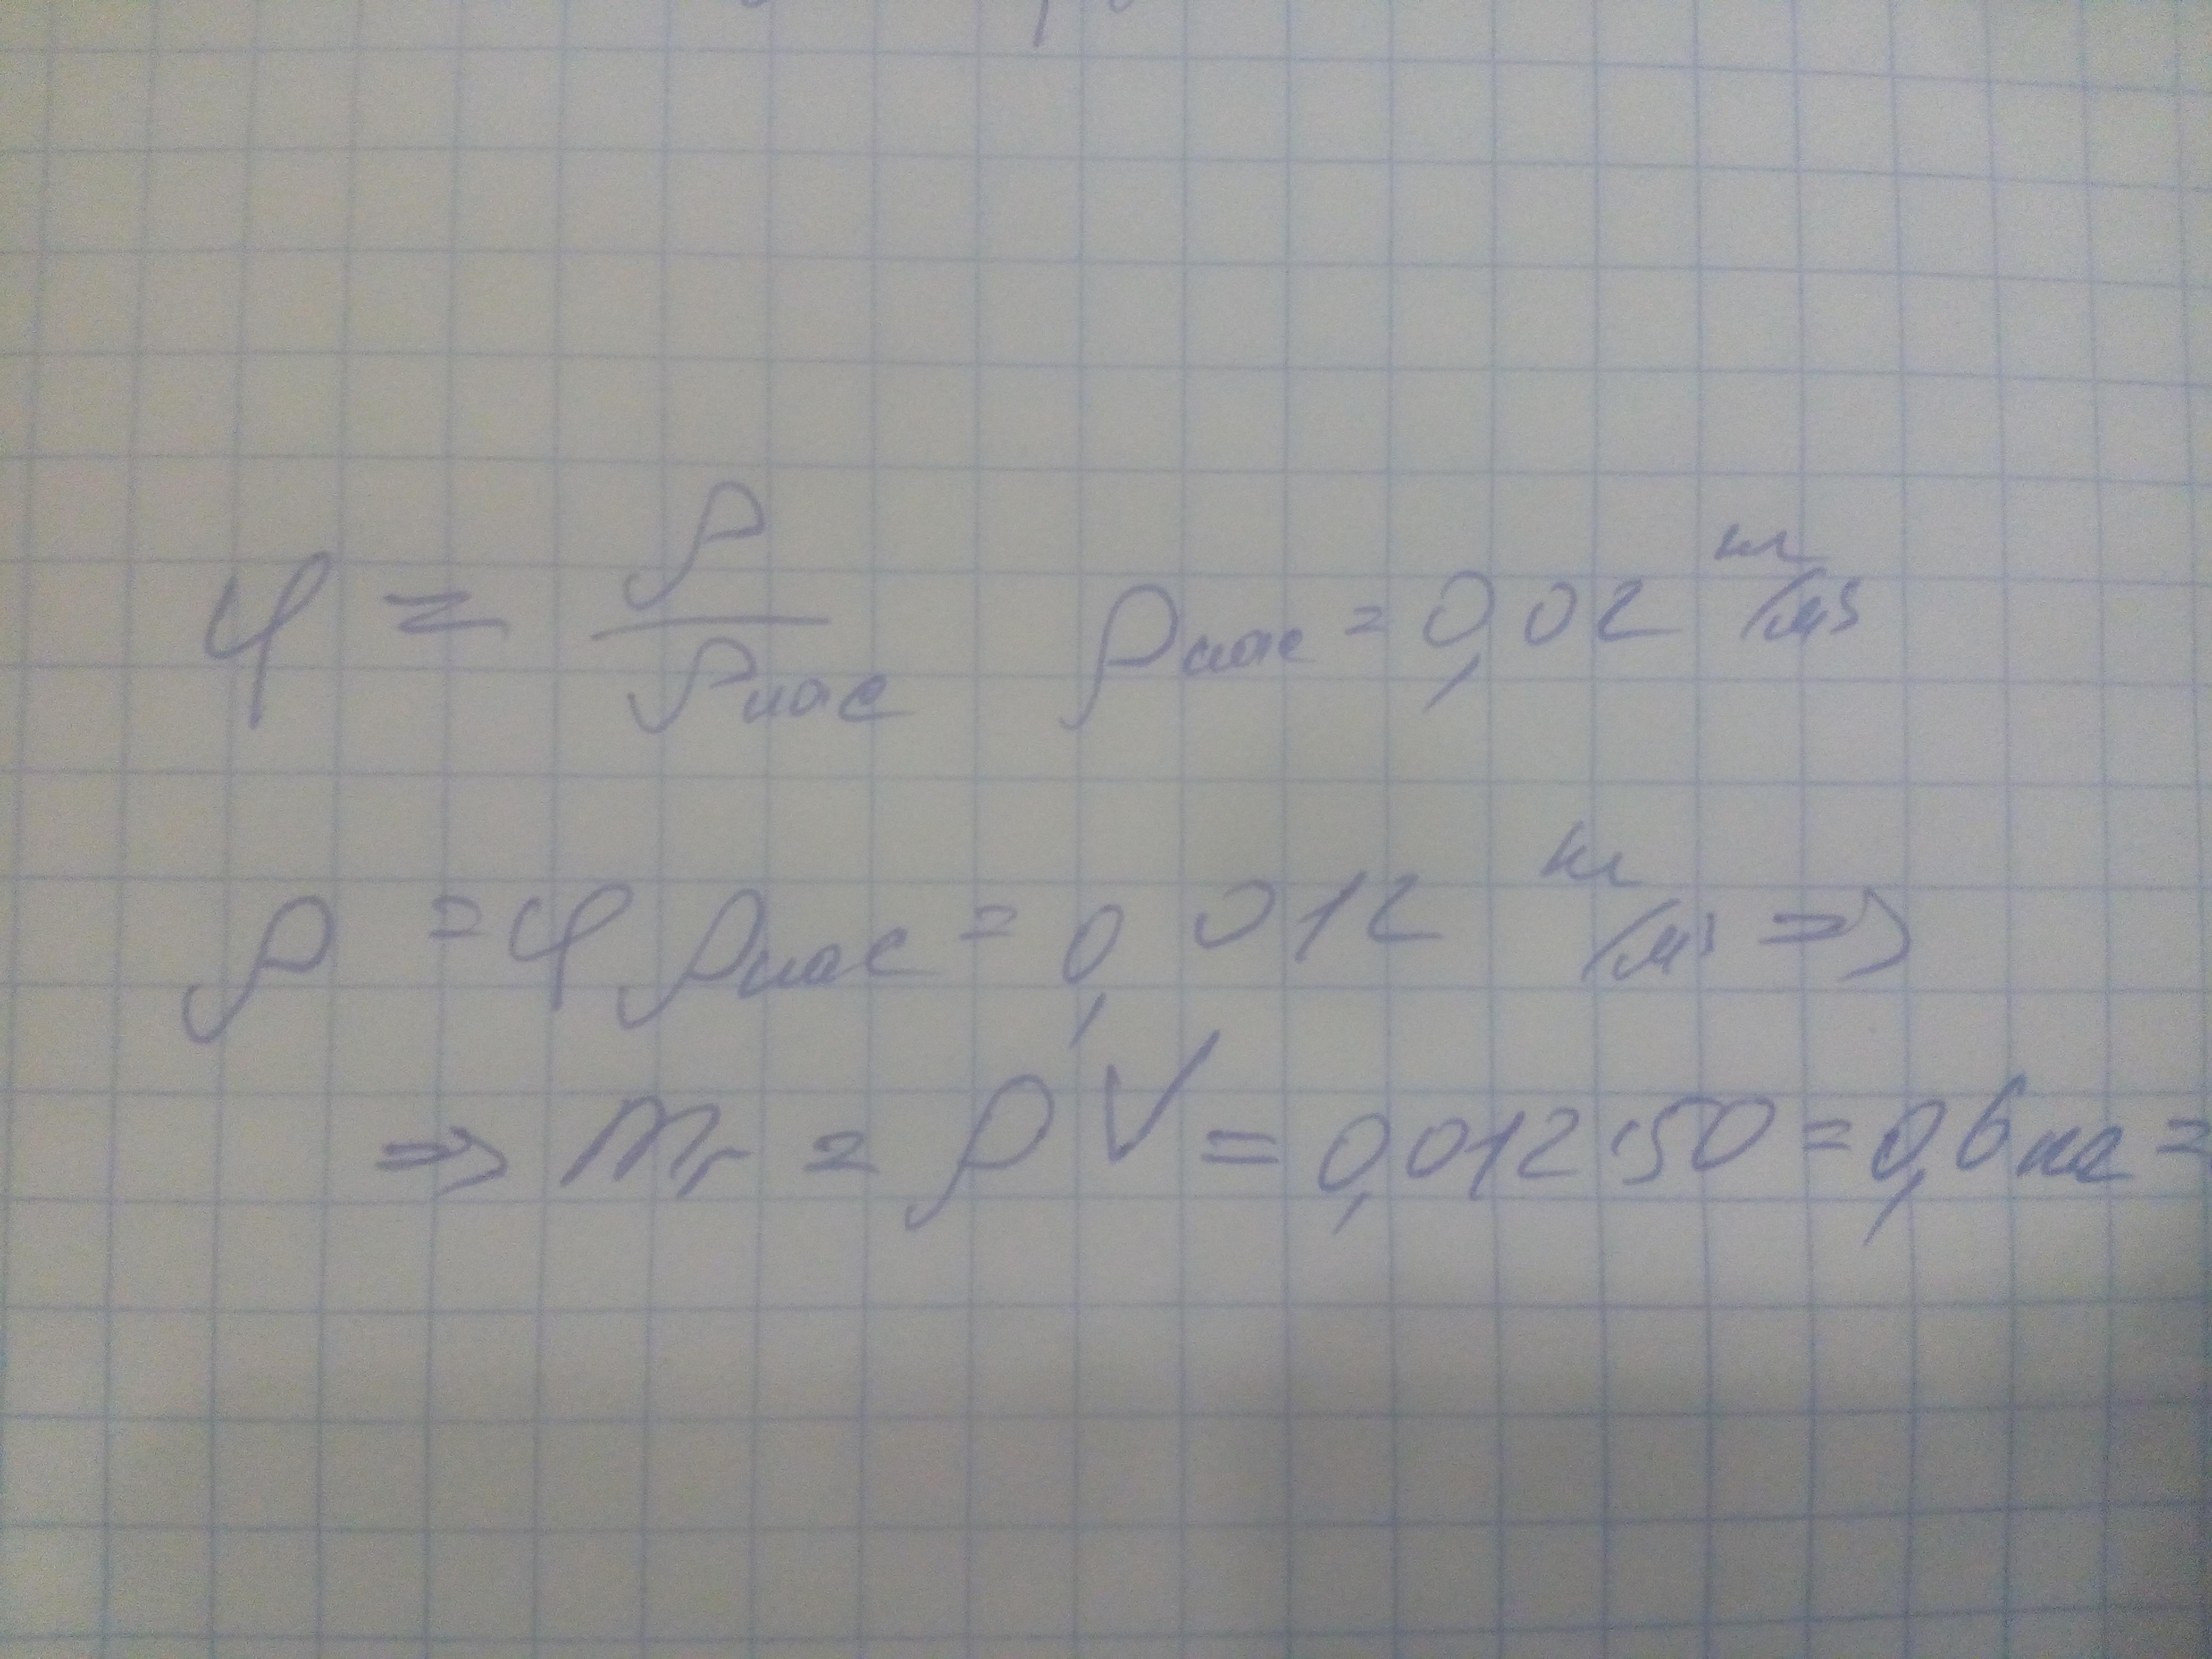 φ = ρ/ρнас ρнас = 0,02 кг/м³
ρ = φ ρнас = 0,012 кг/м³ ⇒
⇒ mг = ρV = 0,012·50 = 0,6 кг =